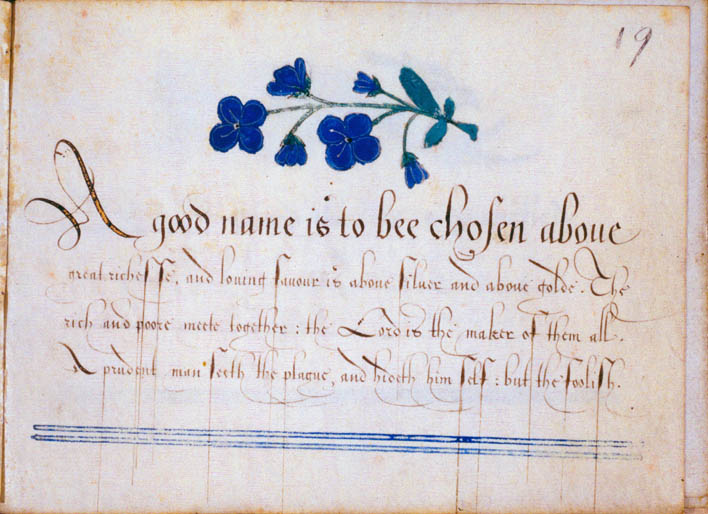 19
A good name is to bee chosen aboue
great richesse, and louing fauour is aboue siluer and aboue golde. The
rich and poore meete together: the Lord is the maker of them all.
A prudent man seeth the plague, and hideth him self: but the foolish.